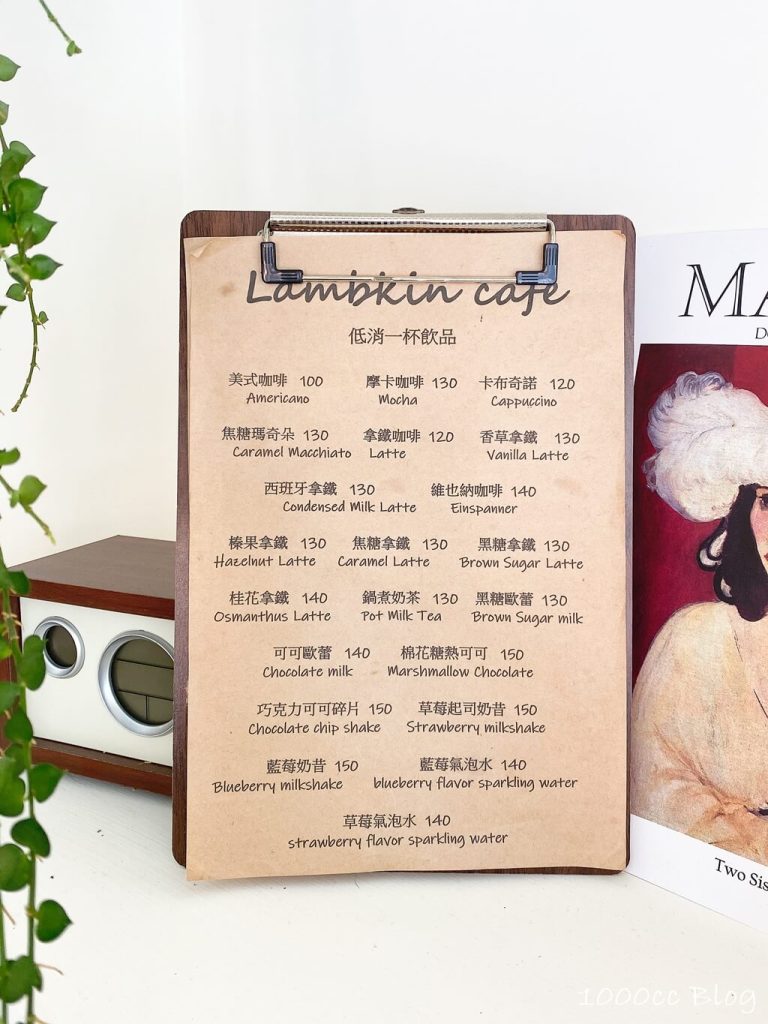 Lambkin cafe
低消一杯飲品
美式咖啡 100 摩卡咖啡 130 卡布奇諾 120
Americano Mocha Cappuccino
焦糖瑪奇朵 130 拿鐵咖啡 120 香草拿鐵 130
Caramel Macchiato Latte Vanilla Latte
西班牙拿鐵 130 維也納咖啡 140
Condensed Milk Latte Einspanner
榛果拿鐵 130 焦糖拿鐵 130 黑糖拿鐵 130
Hazelnut Latte Caramel Latte Brown Sugar Latte
桂花拿鐵 140 鍋煮奶茶 130 黑糖歐蕾 130
Osmanthus Latte Pot Milk Tea Brown Sugar milk
可可歐蕾 140 棉花糖熱可可 150
Chocolate milk Marshmallow Chocolate
巧克力可可碎片 150 草莓起司奶昔 150
Chocolate chip shake Strawberry milkshake
藍莓奶昔 150 藍莓氣泡水 140
Blueberry milkshake blueberry flavor sparkling water
草莓氣泡水 140
strawberry flavor sparkling water
MA
Two Sis
1000cc Blog